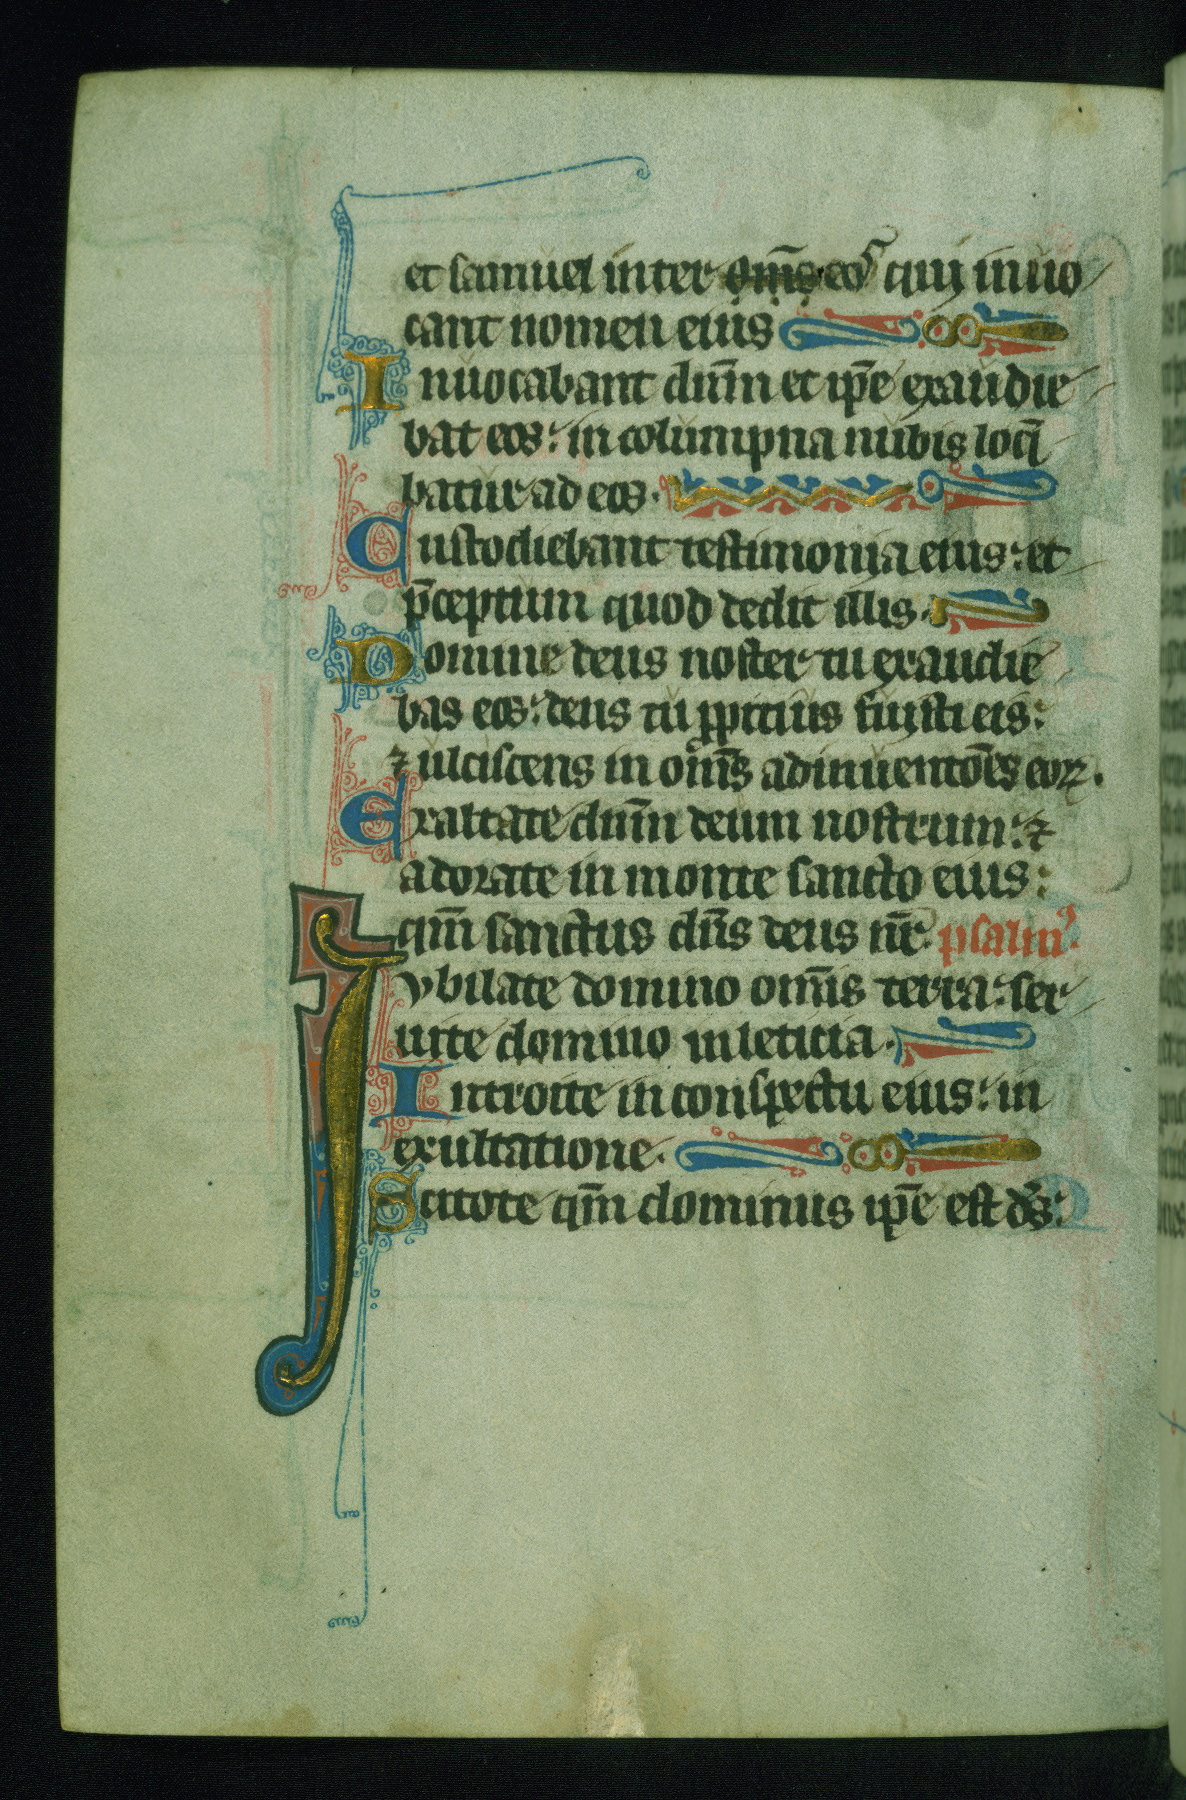 et samuel inter eos qui inuo
cant nomen eius
Inuocabant dn̄m et ip̄e exaudie
bat eos: in columpna nubis loq̄
batur ad eos.
Custodiebant testimonia eius: et
p̄ceptum quod dedit illis.
Domine deus noster tu exaudie
bas eos: deus tu ppitius fuisti eis:
⁊ ulciscens in om̄s adinuentōes eoꝝ.
Exaltate dn̄m deum nostrum: ⁊
adorate in monte sancto eius:
qm̄ sanctus dn̄s deus nr̄. psalm9.
Iubilate domino om̄is terra: ser
uite domino in leticia.
Introite in conspectu eius: in
exultatione.
Scitote qm̄ dominus ip̄e est ds̄: